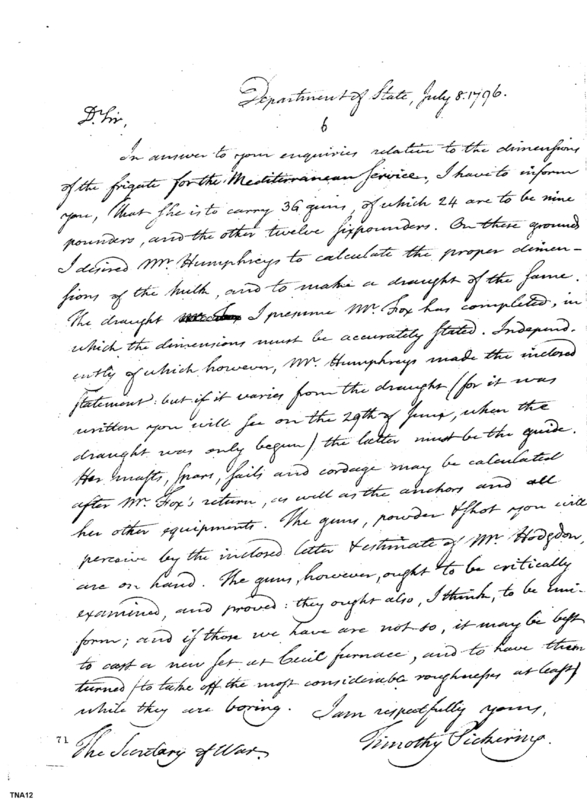 Department of State, July 8. 1796.
Dr. Sir,
6
In answer to your enquiries relative to the dimensions
of the frigate for the Mediterranean service, I have to inform
you, that she is to carry 36 guns, of which 24 are to be nine
pounders, and the other twelve sixpounders. On these ground
I desired Mr. Humphreys to calculate the proper dimen-
sions of the hulk, and to make a draught of the same.
The draught I presume Mr. Fox has completed, in
which the dimensions must be accurately stated. Independ-
ently of which however, Mr. Humphreys made the inclosed
statement: but if it varies from the draught (for it was
written you will see on the 29th of June, when the
draught was only begun) the latter must be the guide.
Her masts, spars, sails and cordage may be calculated
after Mr. Fox's return, as well as the anchors and all
her other equipments. The guns, powder & shot you will
perceive by the inclosed letter & estimate of Mr. Hodgdon,
are on hand. The guns, however, ought to be critically
examined, and proved: they ought also, I think, to be uni-
form; and if those we have are not so, it may be best
to cast a new set at Cecil furnace, and to have them
turned (to take off the most considerable roughnesses at least)
while they are boring. I am respectfully yours,
Timothy Pickering.
71 The Secretary of War.
TNA12